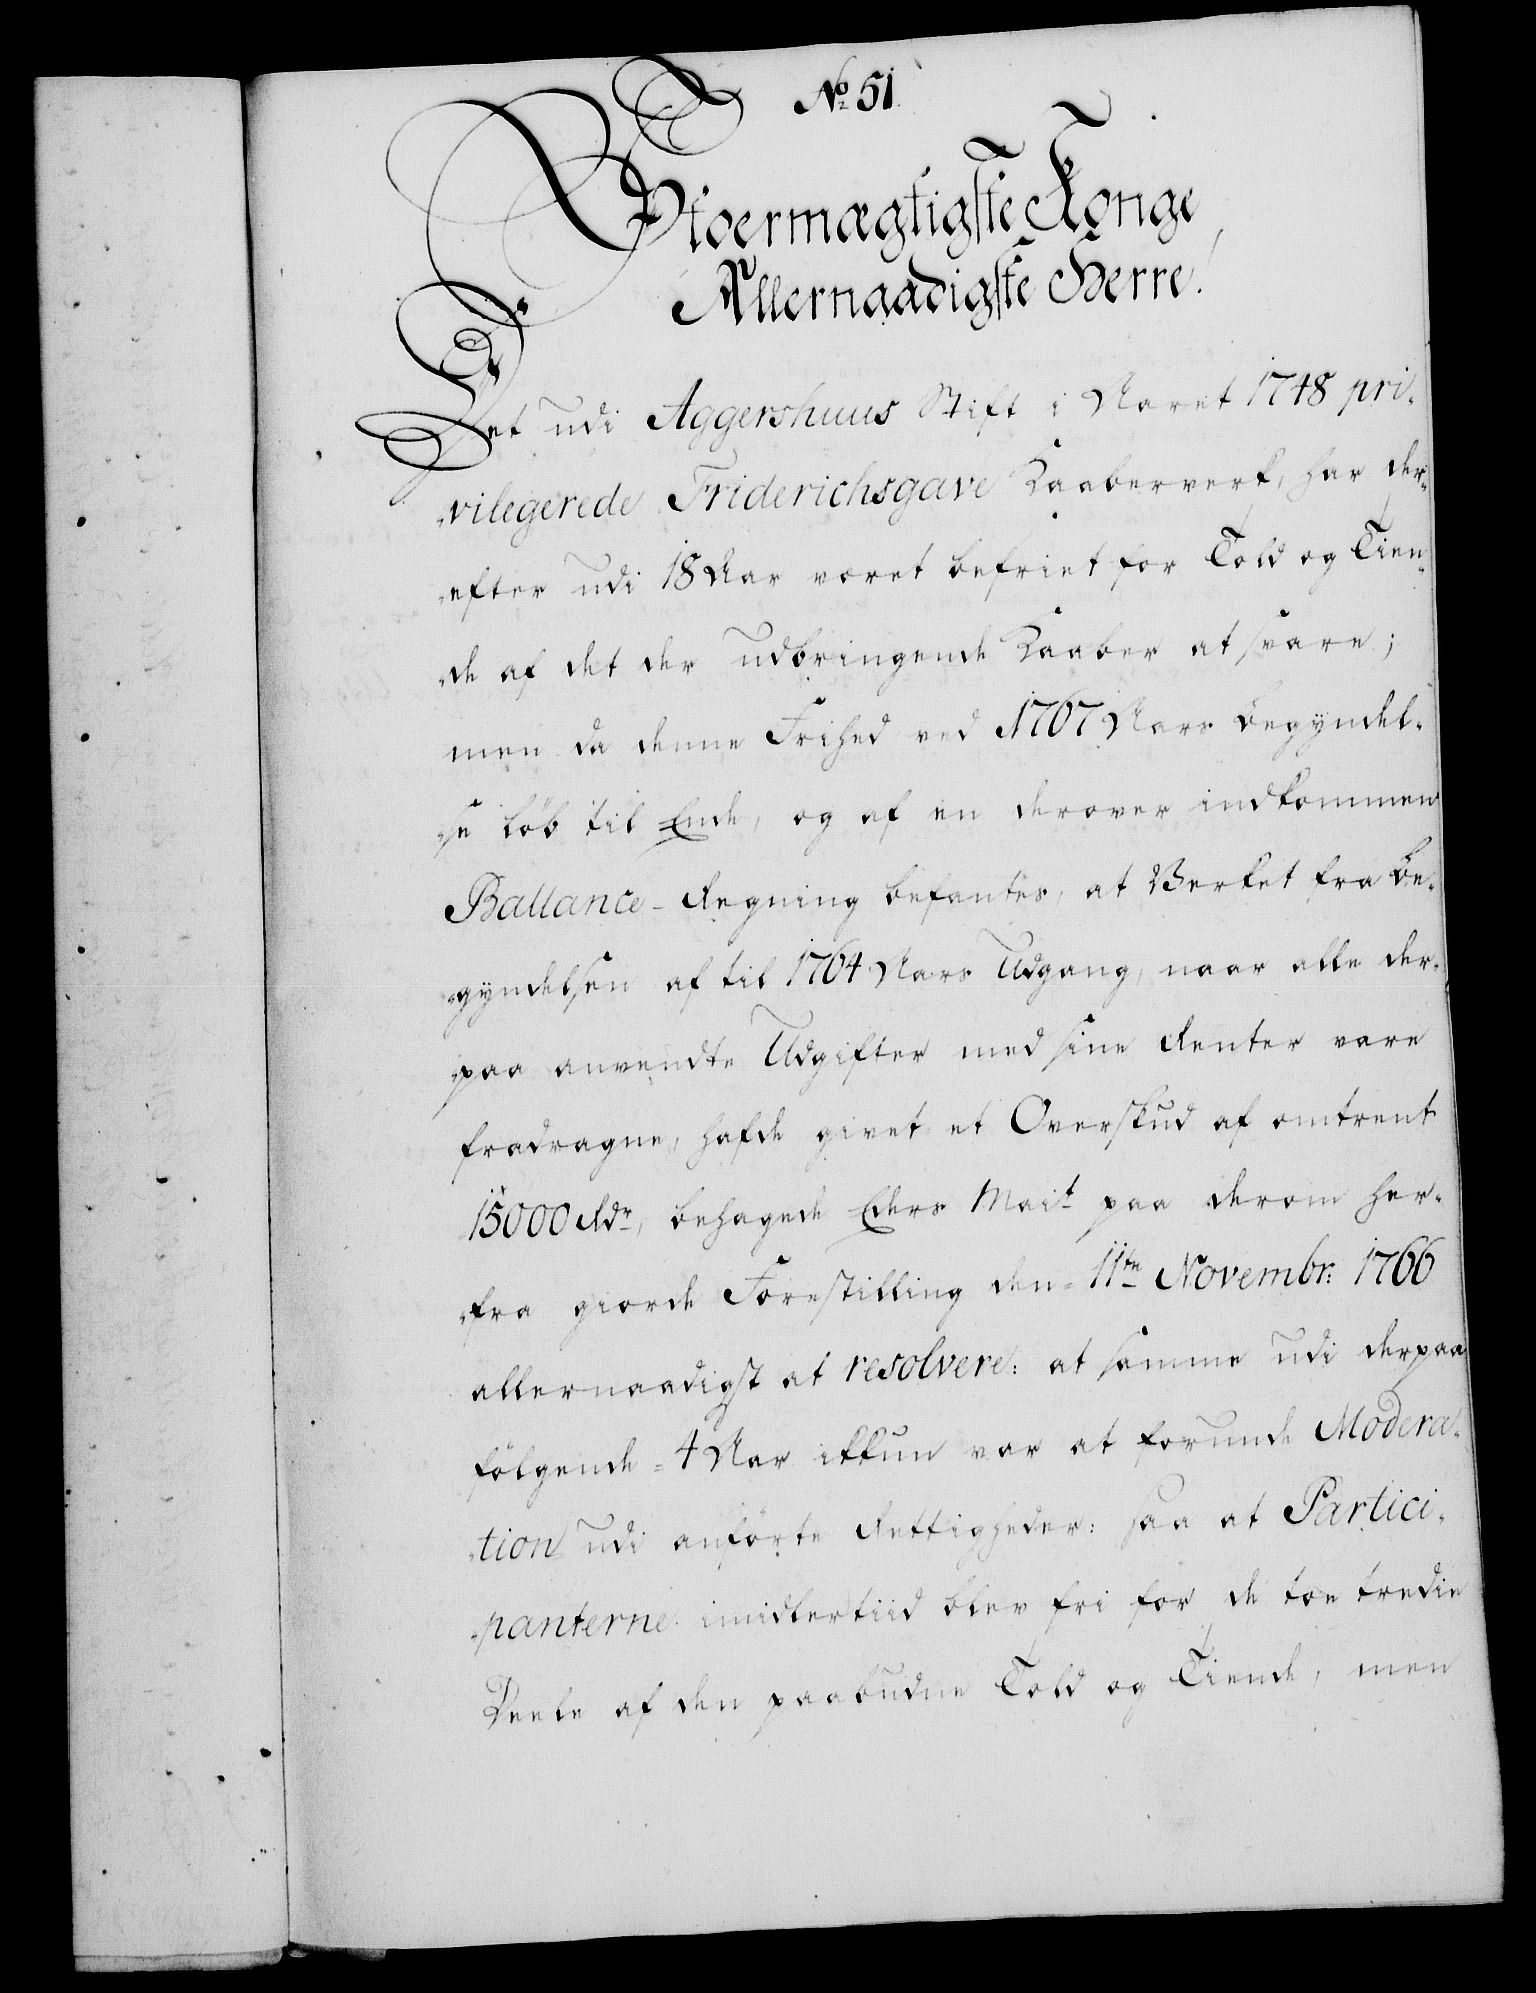 No. 51.
Stoermægtigste Konge,
Allernaadigste Herre!
Det udi Aggershuus Stift i Aaret 1748 pri-
vilegerede Friderichsgave Kaaberverk, har der-
efter udi 18 Aar været befriet for Told og Tien-
de af det der udbringende Kaaber at svare;
men da denne Frihed ved 1767 Aars Begyndel-
se löb til Ende, og af en derover indkommen
Ballance-Regning befantes, at Verket fra Be-
gyndelsen af til 1764 Aars Udgang, naar alle der-
paa anvendte Udgifter med sine Renter vare
fradragne, hafde givet et Overskud af omtrent
15000 Rdr, behagede Eders Mait paa derom her-
fra giorde Forestilling den 11te Novembr: 1766
allernaadigst at resolvere: at samme udi derpaa
fölgende 4 Aar ikkun var at forunde Modera-
tion udi anförte Rettigheder: saa at Partici-
panterne imidlertiid blev fri for de toe tredie
Deele af den paabudne Told og Tiende, men